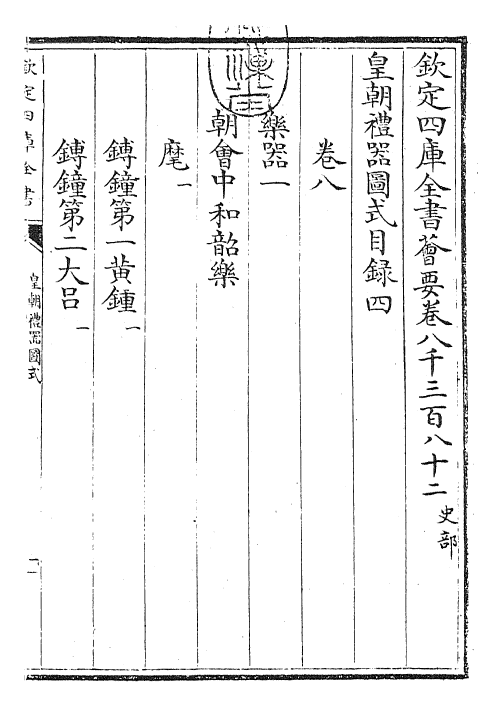 欽定四庫全書薈要卷八千三百八十二 史部
皇朝禮器圖式目録四
卷八
樂器一
朝會中和韶樂
麾一
鎛鐘第一黃鍾一
鎛鐘第二大呂一
欽定四庫全書
皇朝禮器圖式
一